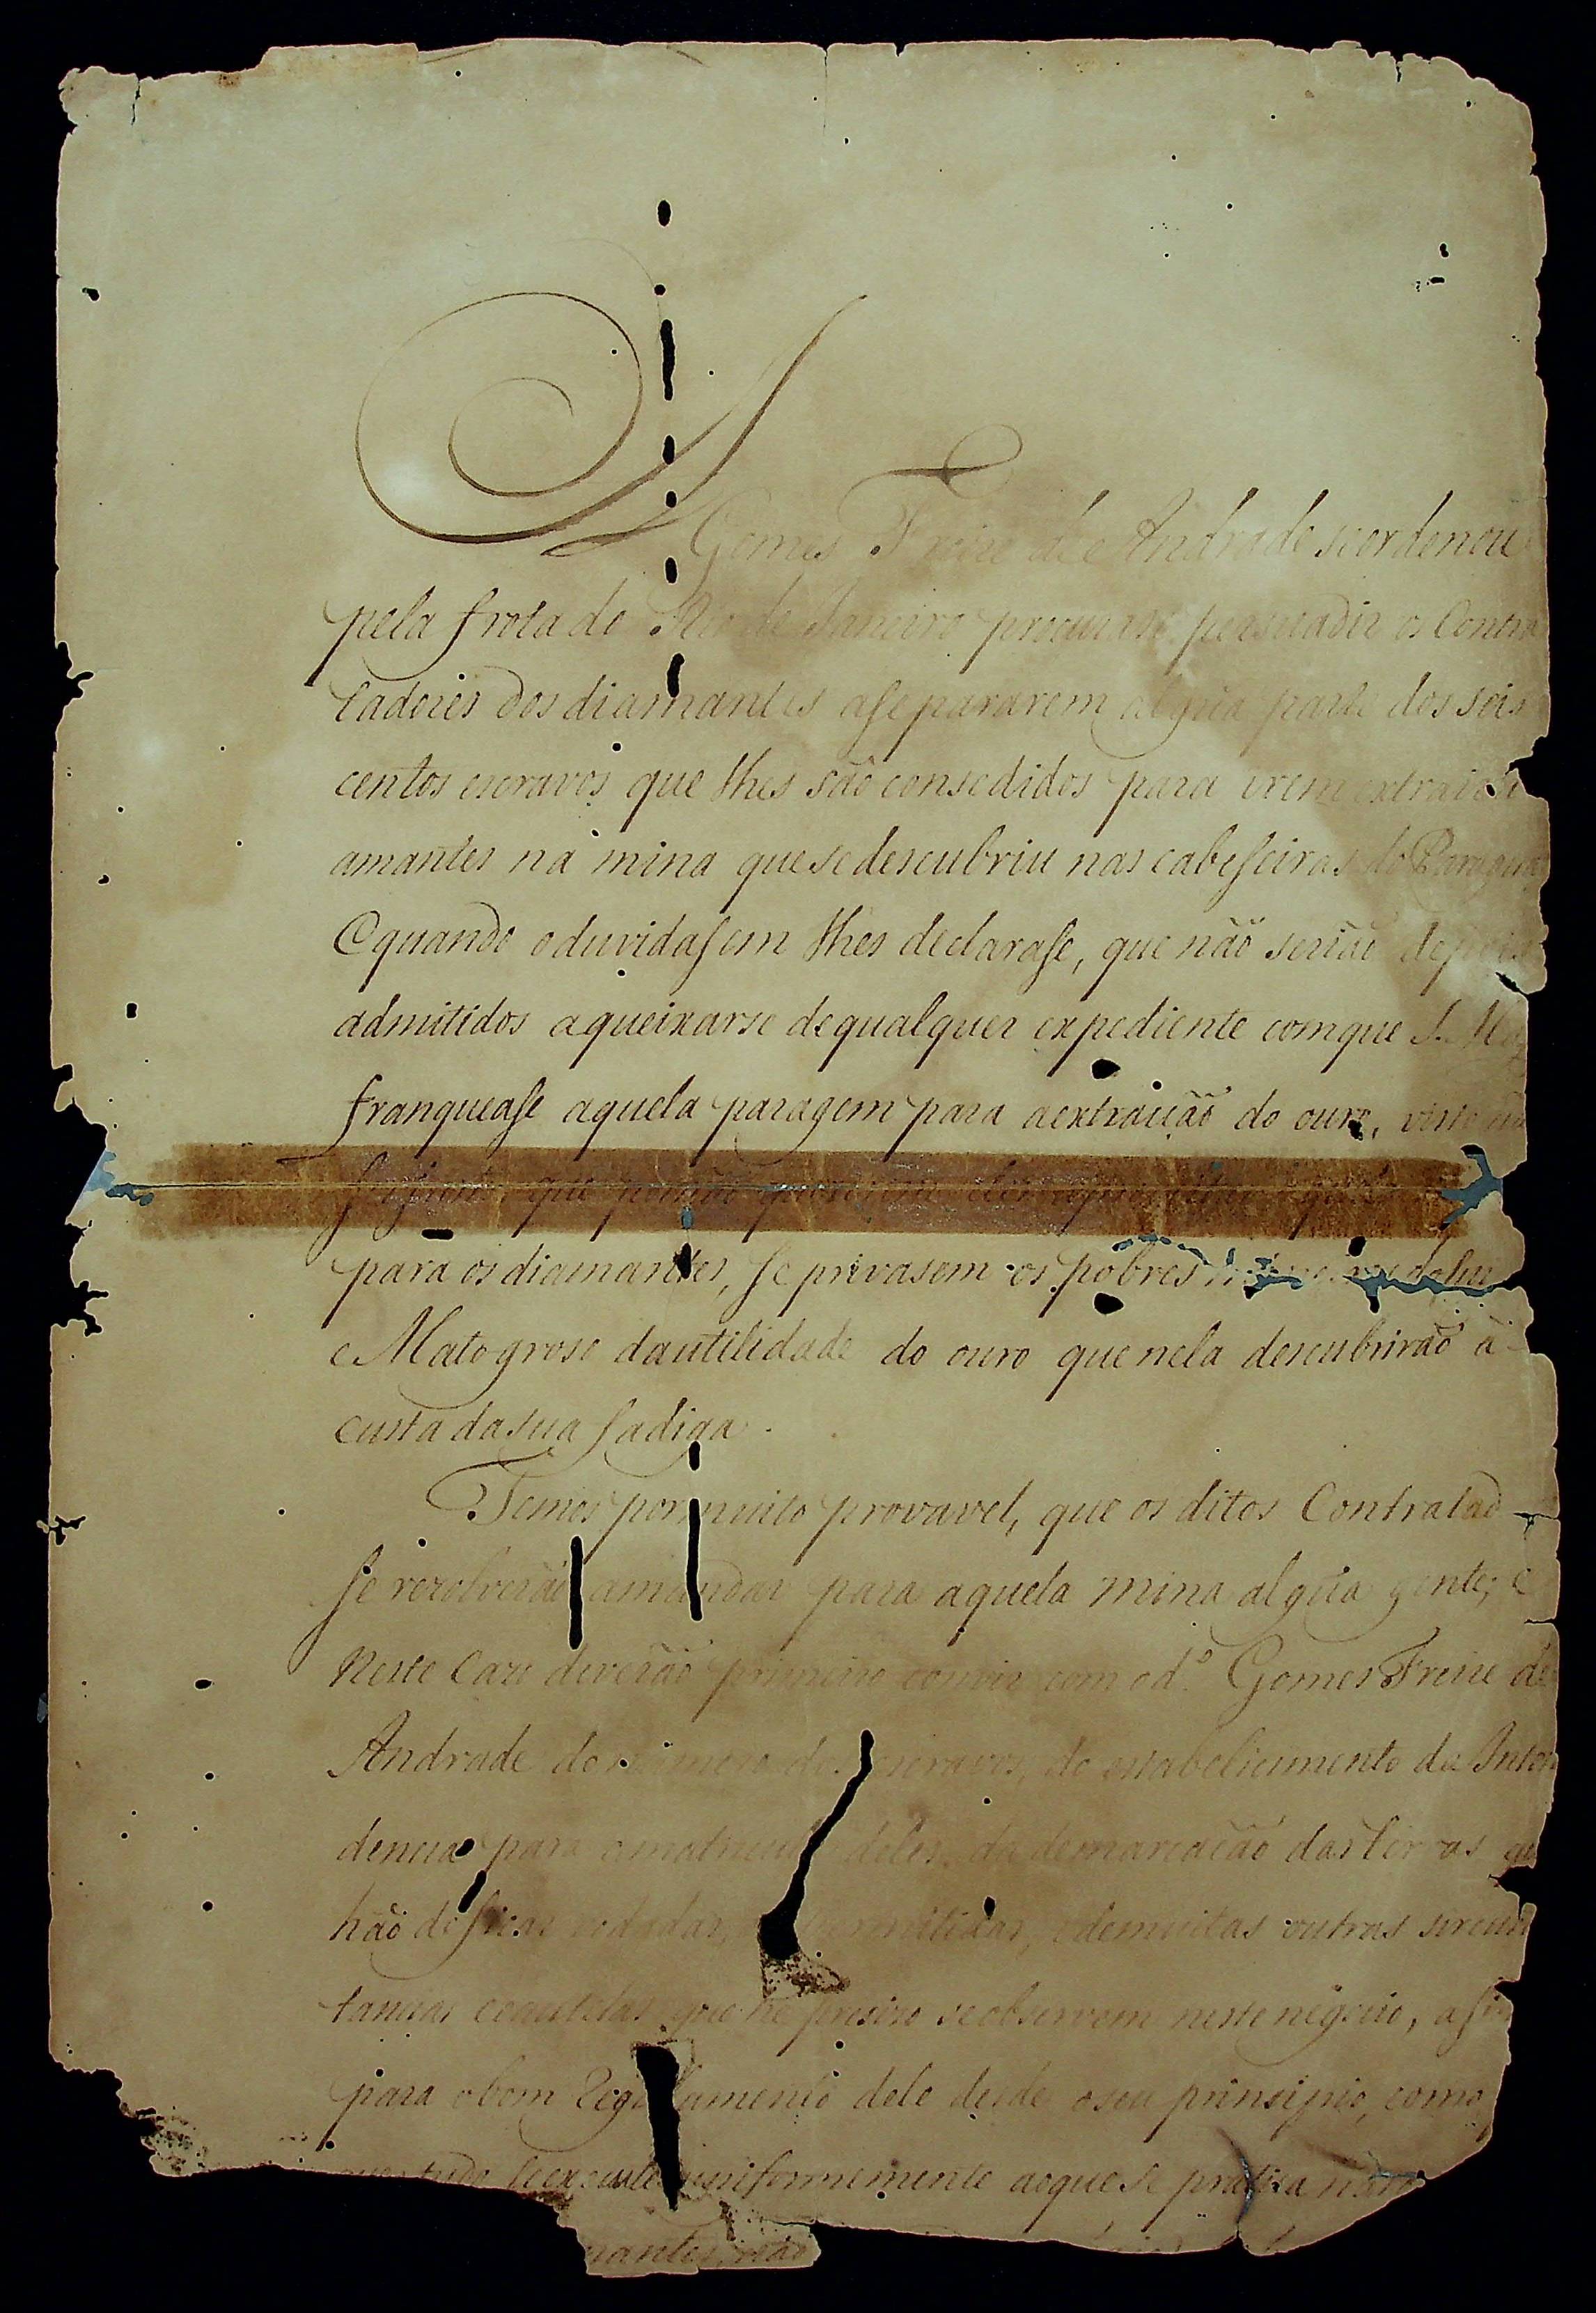 A
Gomes Freire de Andrade se ordenou
pela frota do Rio de Janeiro procurase persuadir os Contra
tadores dos diamantes aseparavem algũa parte dos seis
centos escravos que lhes saõ consedidos para irem extrair di
amantes na mina que se descubriu nas cabeseiras do Paraguay
E quando o duvidasem lhes declarase, que naõ seriaõ depois
admitidos aqueixarse dequalquer expediente comque S. Mag
franquease aquela paragem para aextraiçaõ do ouro, visto
que
para os diamantes, se privasem os pobres
e Mato groso dautilidade do ouro que nela descubriraõ à
custa dasua fadiga.
Temos pormuito provavel, que os ditos Contratad
se rezolveraõ amandar para aquela mina algũa gente; e
neste Cazo deveraõ primeiro convir com o d.º Gomes Freire de
Andrade do numero dos escravos, do estabelicimento da Inten
dencia para amatricula deles, da demarcaçaõ das terras que
haõ de ficar vedadas, permitidas, edemuitas outras sircuns
tancias ecautelas que he presizo se observem neste negocio, asim
para obom Regulamento dele desde oseu prinsipio, como
tudo seexecute uniformemente aoque se pratica
mantes